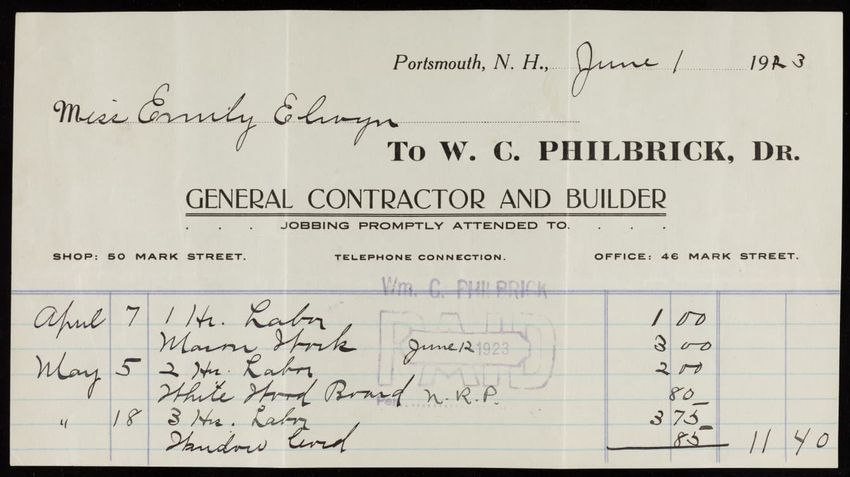 Portsmouth, N. H., June 1 1923
Miss Emily Elwyn
To W. C. PHILBRICK, Dr.
GENERAL CONTRACTOR AND BUILDER
. . . JOBBING PROMPTLY ATTENDED TO. . . .
SHOP: 50 MARK STREET. TELEPHONE CONNECTION. OFFICE: 46 MARK STREET.
Wm. C. PHILBRICK
PAID
June 12 1923
Per
N.R.P.
April 7 1 Hr. Labor 1 00
Mason Work 3 00
May 5 2 Hr. Labor 2 00
White Wood Board 80
" 18 3 Hr. Labor 3 75
Window Cord 85 11 40